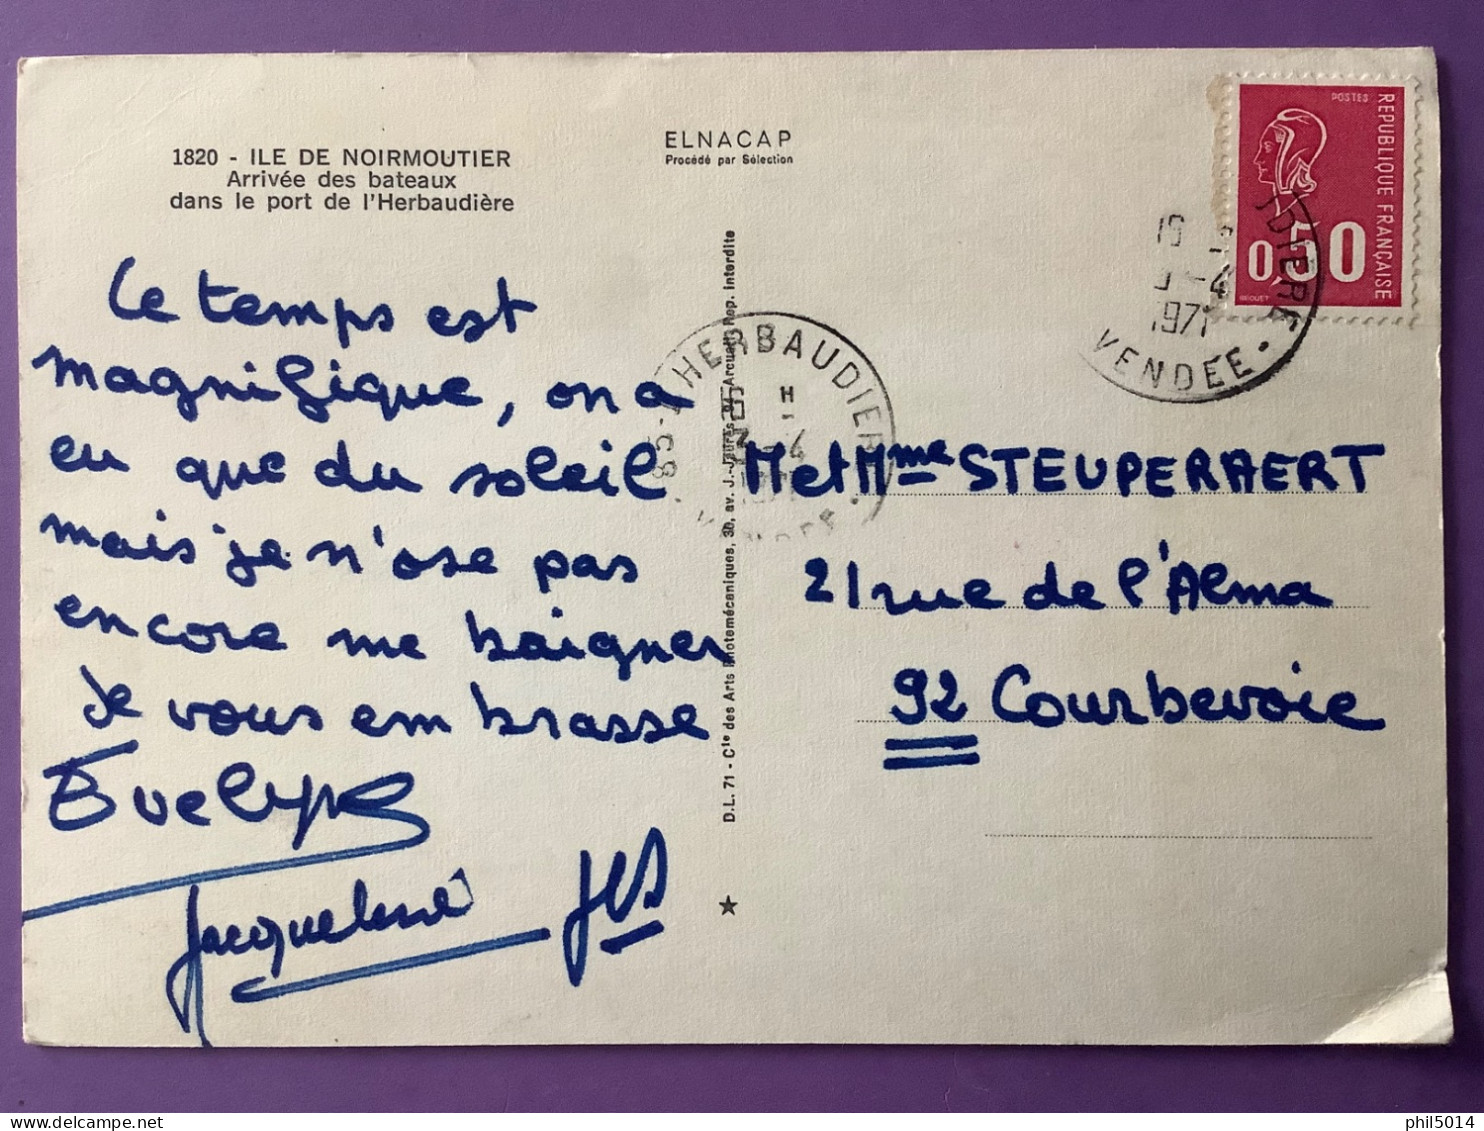 1820 - ILE DE NOIRMOUTIER
Arrivée des bateaux
dans le port de l'Herbaudière
ELNACAP
Procédé par Sélection
Le temps est
magnifique, on a
eu que du soleil
mais je n'ose pas
encore me baigner
je vous embrasse
Evelyne
Jacqueline
D.L. 71 - Cie des Arts Photomécaniques, 3b, av. J.-Jaurès, Arcueil Rep. Interdite
85-L'HERBAUDIERE
VENDEE
POSTES
REPUBLIQUE FRANÇAISE
0,50
BEQUET
-4
1971
DIERE
VENDEE
M et Mme STEUPERAERT
21 rue de l'Alma
92 Courbevoie
phil5014